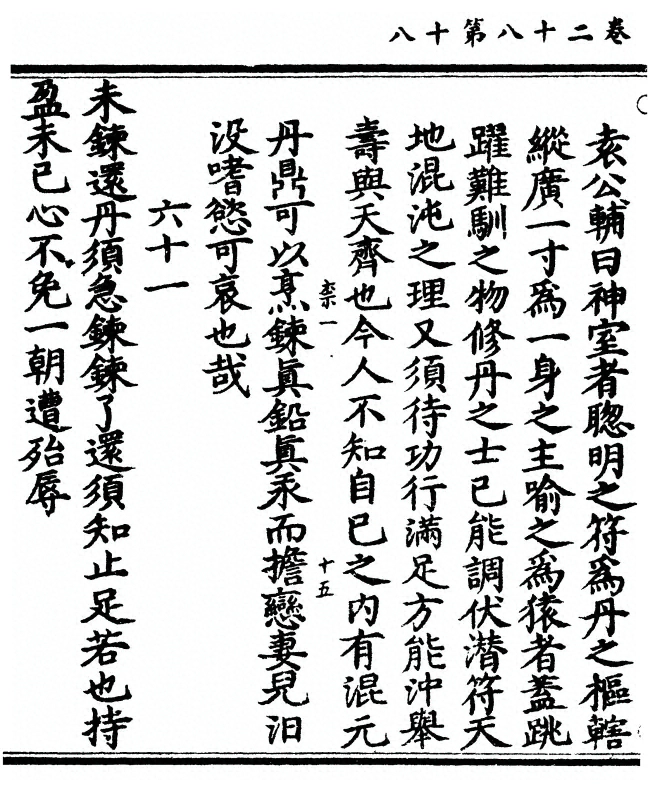 卷二十八第十八
袁公輔曰神室者聰明之符爲丹之樞轄
縱廣一寸爲一身之主喻之爲猿者蓋跳
躍難馴之物修丹之士已能調伏潛符天
地混沌之理又須待功行滿足方能沖舉
壽與天齊也今人不知自已之內有混元
柰一
十五
丹鼎可以烹鍊眞鉛眞汞而擔戀妻兒汩
没嗜慾可哀也哉
六十一
未鍊還丹須急鍊鍊了還須知止足若也持
盈未已心不免一朝遭殆辱